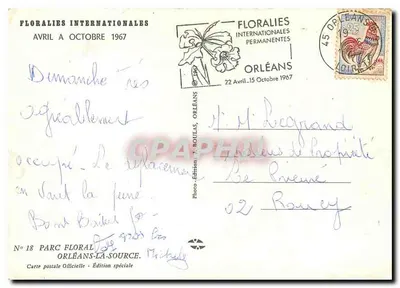 FLORALIES INTERNATIONALES
AVRIL A OCTOBRE 1967
FLORALIES
INTERNATIONALES
PERMANENTES
ORLÉANS
22 Avril-15 Octobre 1967
45 ORLEANS
LOIRET
Dimanche Très
agréablement
occupé. Le
vaut la peine.
Bons Baisers
M. M. Legrand
de Propriété
Le Prieuré
02 Roucy
Photo-Édition
ORLÉANS
CARTE PARC
N° 18 PARC FLORAL
ORLÉANS-LA-SOURCE.
Carte postale Officielle - Édition spéciale